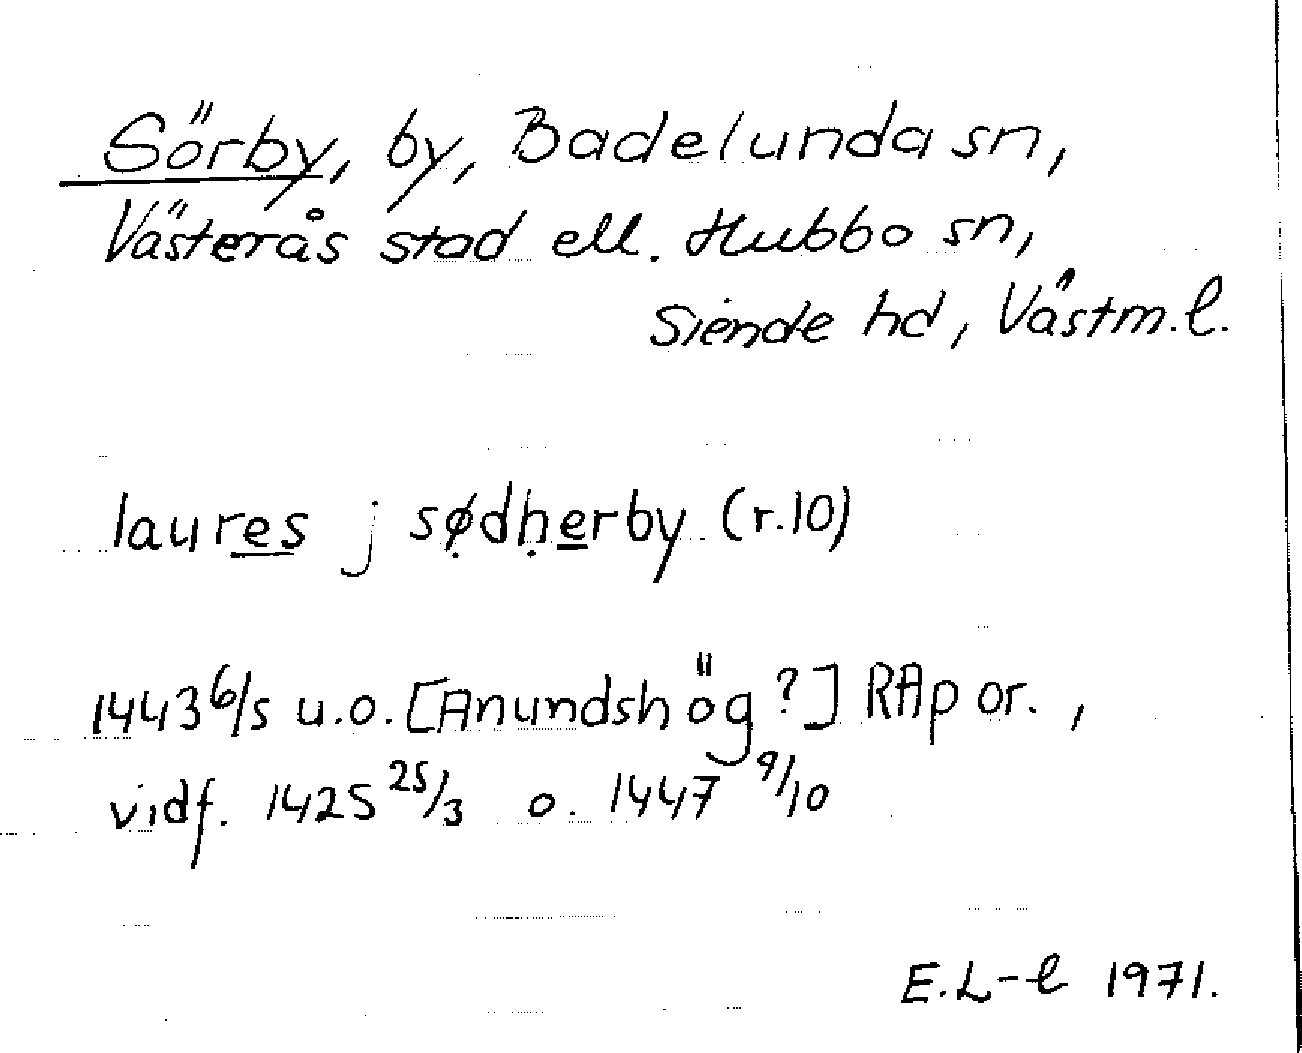 Sörby, by, Badelunda sn,
Västerås stad ell. Hubbo sn,
Siende hd, Västm. l.
laures j sø̣dḥerby (r.10)
1443 6/5 u.o. [Anundshög?] RAp or.,
vidf. 1425 25/3 o. 1447 9/10
E.L-l 1971.